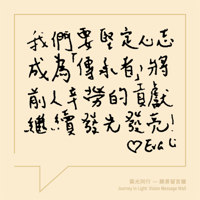 我們要堅定心志
成為「傳承者」將
前人辛勞的貢獻
繼續發光發亮!
♡Eva Li
Journey in Light: Vision Message Wall